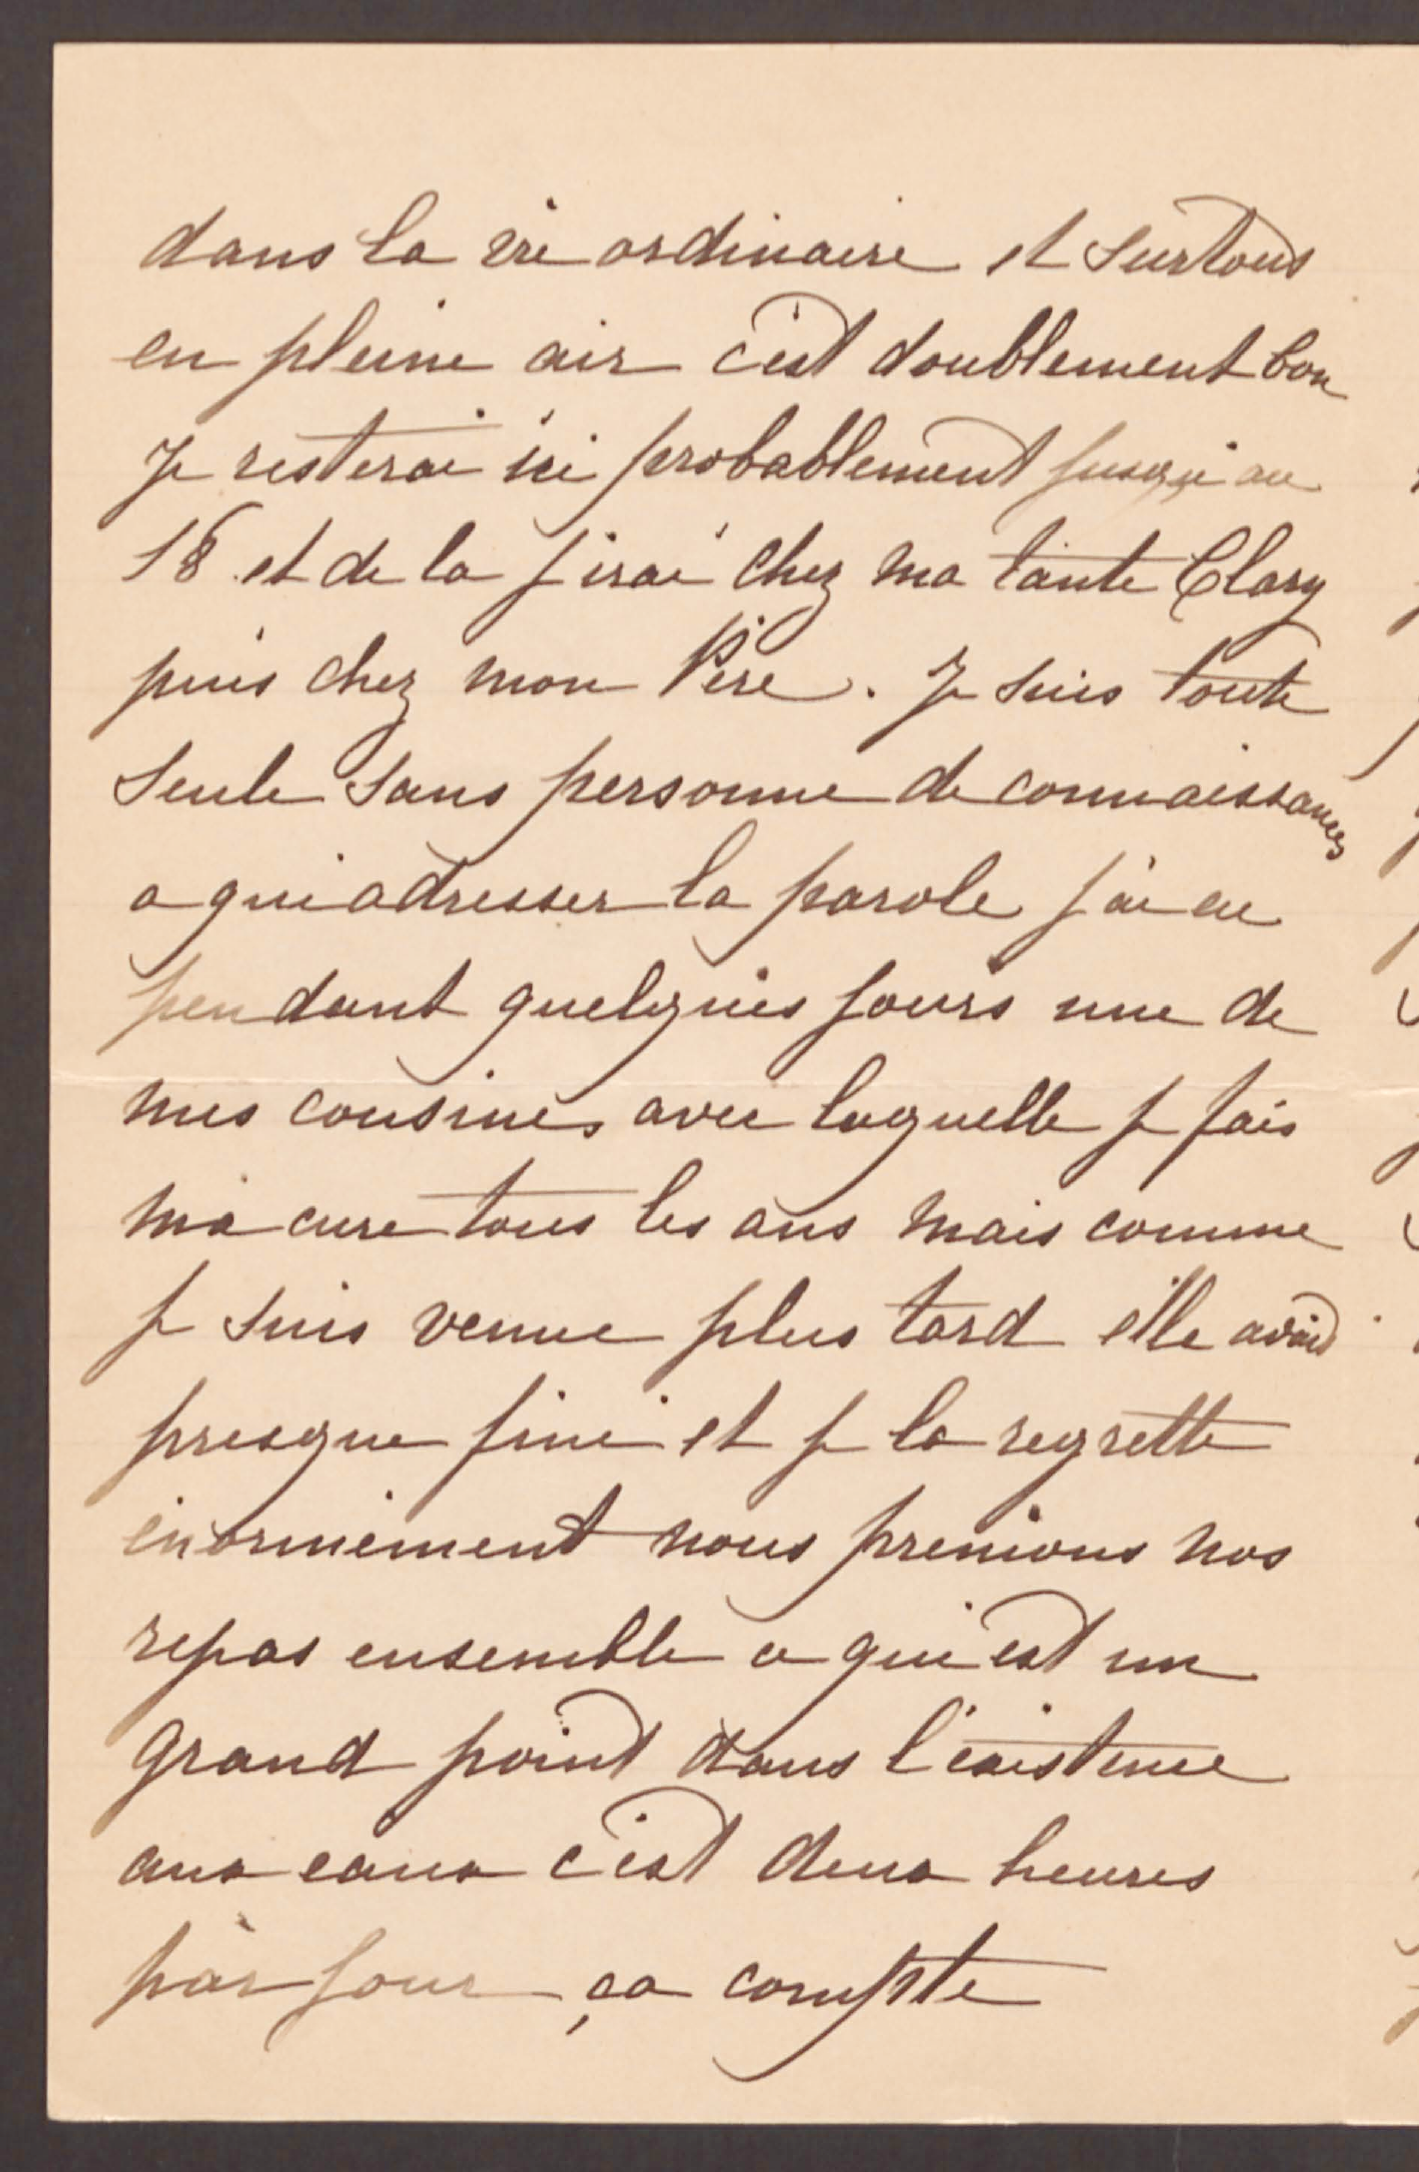 dans la vie ordinaire et surtout
en pleine air c'est doublement bon
Je resterai ici probablement jusqu'au
18 et de la j'irai chez ma tante Clary
puis chez mon Père. Je suis toute
seule sans personne de connaissances
a qui adresser la parole j'ai eu
pendant quelques jours une de
mes cousines avec laquelle je fais
ma cure tous les ans mais comme
je suis venue plus tard elle avait
presque fini et je la regrette
énormément nous prenions nos
repas ensemble ce qui est un
grand point dans l'éxistence
aux eaux c'est deux heures
par jour ça compte